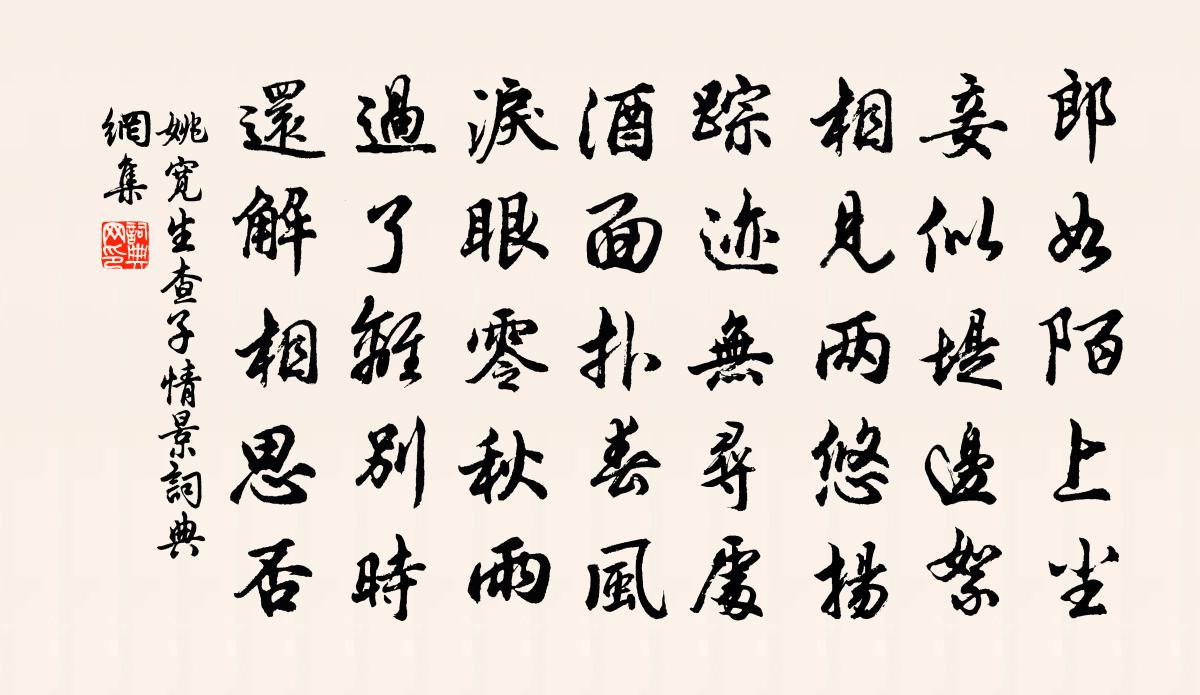 郎如陌上尘
妾似堤邊絮
相見两悠揚
踪迹無尋處
酒面扑春風
淚眼零秋雨
過了離別時
還解相思否
姚寬生查子情景詞典
網集
詞典網印